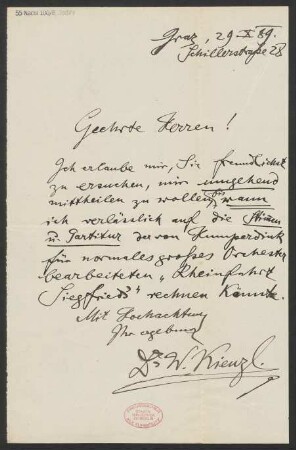 Graz, 29. X 89.
Schillerstraße 28
Geehrte Herren!
Ich erlaube mir, Sie freundlichst
zu ersuchen, mir umgehend
mittheilen zu wollen, bis wann
ich verlässlich auf die Stimm
u. Partitur der von Humperdinck
für normales großes Orchester
bearbeiteten „Rheinfahrt
Siegfrieds“ rechnen könnte.
Mit Hochachtung
Ihr ergebenst
Dr. W. Kienzl.